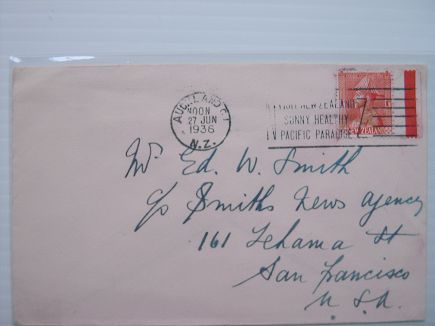 AUCKLAND C.1
NOON
27 JUN
1936
N.Z.
VISIT NEW ZEALAND
SUNNY HEALTHY
PACIFIC PARADISE
NEW ZEALAND
Mr Ed. W. Smith
c/o Smiths News Agency
161 Tehama St
San Francisco
U.S.A.